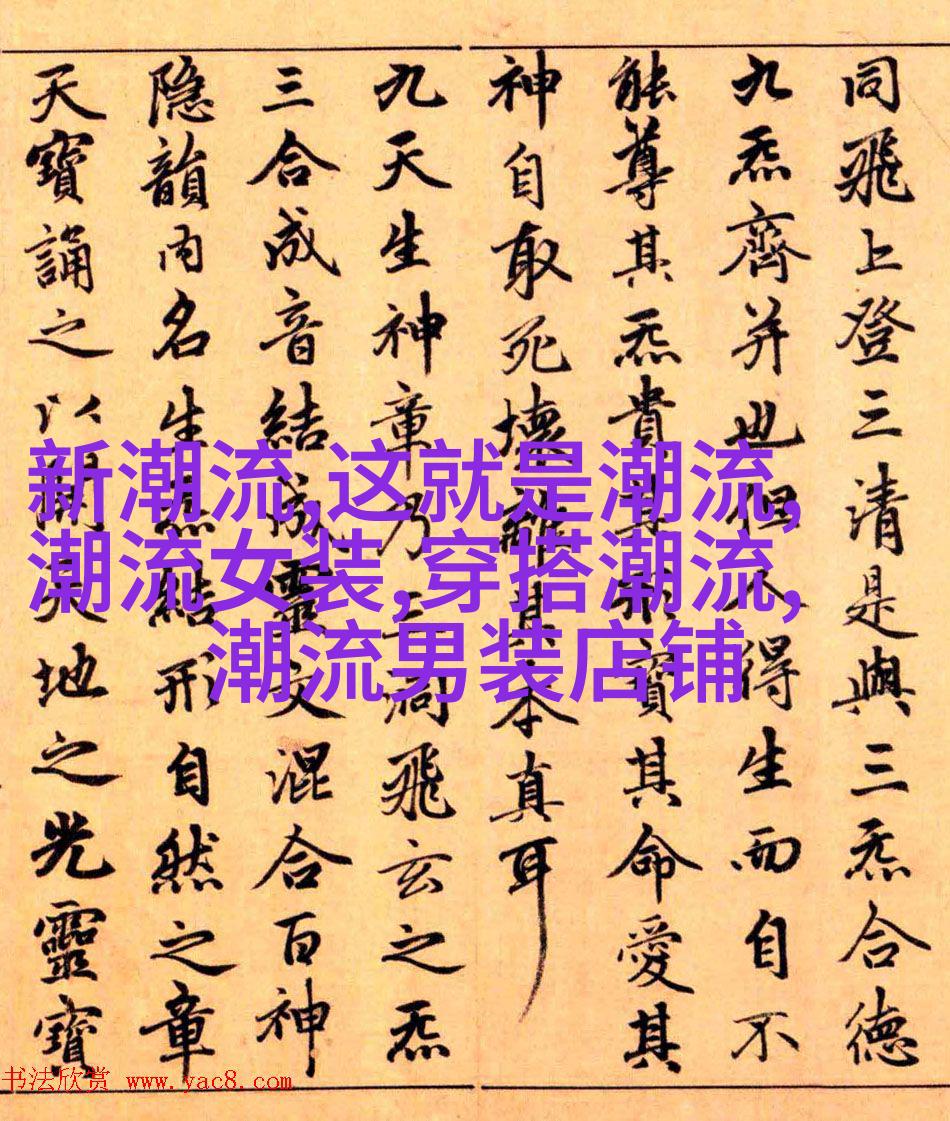 同飛上登三清是與三炁合德
九炁齊并也但不得生而自不
能尊其炁貴其形寶其命愛其
神自取死壞離其本真耳
九天生神章乃三洞飛玄之炁
三合成音結成靈文混合百神
隱韻內名生炁結形自然之章
天寶誦之以開天地之光靈寶
新潮流,这就是潮流,
潮流女装,穿搭潮流,
潮流男装店铺
书法欣赏 www.yac8.com